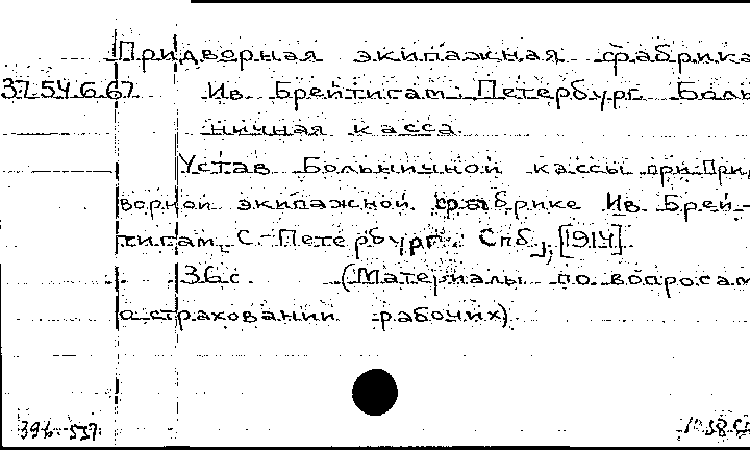 Придворная экипажная фабрика
37.54.6.67 Ив. Брейтигам. Петербург. Боль
ничная касса.
Устав Больничной кассы при Прид
ворной экипажной фабрике Ив. Брей-
тигам. С.-Петербург. Спб., [1914].
36 с. (Материалы по вопросам
о страховании рабочих)
396-557